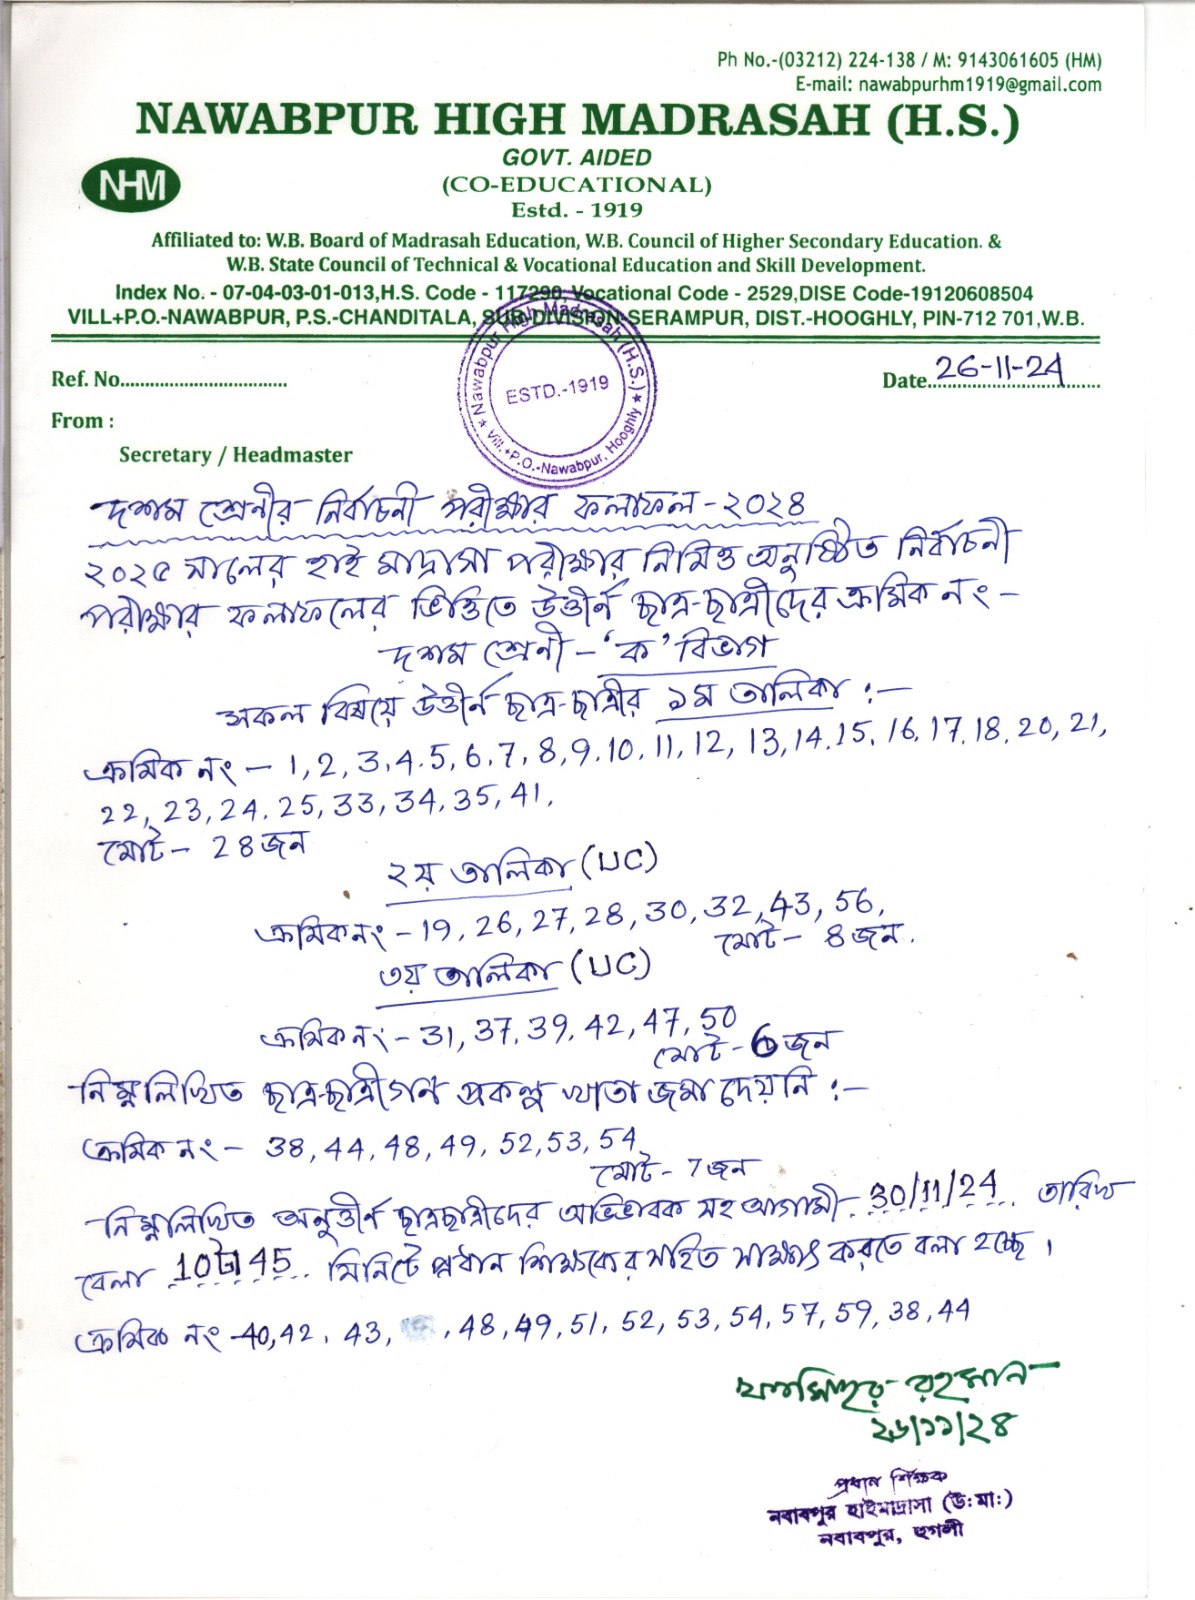 Ph No.-(03212) 224-138 / M: 9143061605 (HM)
E-mail: nawabpurhm1919@gmail.com
NAWABPUR HIGH MADRASAH (H.S.)
NHM
GOVT. AIDED
(CO-EDUCATIONAL)
Estd. - 1919
Affiliated to: W.B. Board of Madrasah Education, W.B. Council of Higher Secondary Education. &
W.B. State Council of Technical & Vocational Education and Skill Development.
Index No. - 07-04-03-01-013,H.S. Code - 117290, Vocational Code - 2529,DISE Code-19120608504
VILL+P.O.-NAWABPUR, P.S.-CHANDITALA, SUB-DIVISION-SERAMPUR, DIST.-HOOGHLY, PIN-712 701,W.B.
Nawabpur High Madrasah (H.S.)
ESTD.-1919
Vill.+P.O.-Nawabpur, Hooghly
Ref. No.................................. Date.. 26-11-24
From :
Secretary / Headmaster
দশম শ্রেনীর নির্বাচনী পরীক্ষার ফলাফল - ২০২৪
২০২৫ সালের হাই মাদ্রাসা পরীক্ষার নিমিত্ত অনুষ্ঠিত নির্বাচনী
পরীক্ষার ফলাফলের ভিত্তিতে উত্তীর্ন ছাত্র-ছাত্রীদের ক্রমিক নং -
দশম শ্রেনী - 'ক' বিভাগ
সকল বিষয়ে উত্তীর্ন ছাত্র-ছাত্রীর ১ম তালিকা :-
ক্রমিক নং - 1, 2, 3, 4. 5, 6, 7, 8, 9. 10, 11, 12, 13, 14. 15. 16, 17. 18, 20, 21,
22, 23, 24. 25, 33, 34, 35, 41,
মোট - 28 জন
২য় তালিকা (UC)
ক্রমিক নং - 19, 26, 27, 28, 30, 32, 43, 56,
মোট - 8 জন.
৩য় তালিকা (UC)
ক্রমিক নং - 31, 37, 39, 42, 47, 50
মোট - 6 জন
নিম্নলিখিত ছাত্র-ছাত্রীগন প্রকল্প খাতা জমা দেয়নি :-
ক্রমিক নং - 38, 44, 48, 49, 52, 53, 54
মোট - 7 জন
নিম্নলিখিত অনুত্তীর্ণ ছাত্রছাত্রীদের অভিভাবক সহ আগামী 30/11/24 তারিখ
বেলা 10টা 45 মিনিটে প্রধান শিক্ষকের সহিত সাক্ষাৎ করতে বলা হচ্ছে।
ক্রমিক নং - 40, 42, 43, , 48, 49, 51, 52, 53, 54, 57, 59, 38, 44
রহমান
২৬/১১/২৪
প্রধান শিক্ষক
নবাবপুর হাইমাদ্রাসা (উঃমাঃ)
নবাবপুর, হুগলী